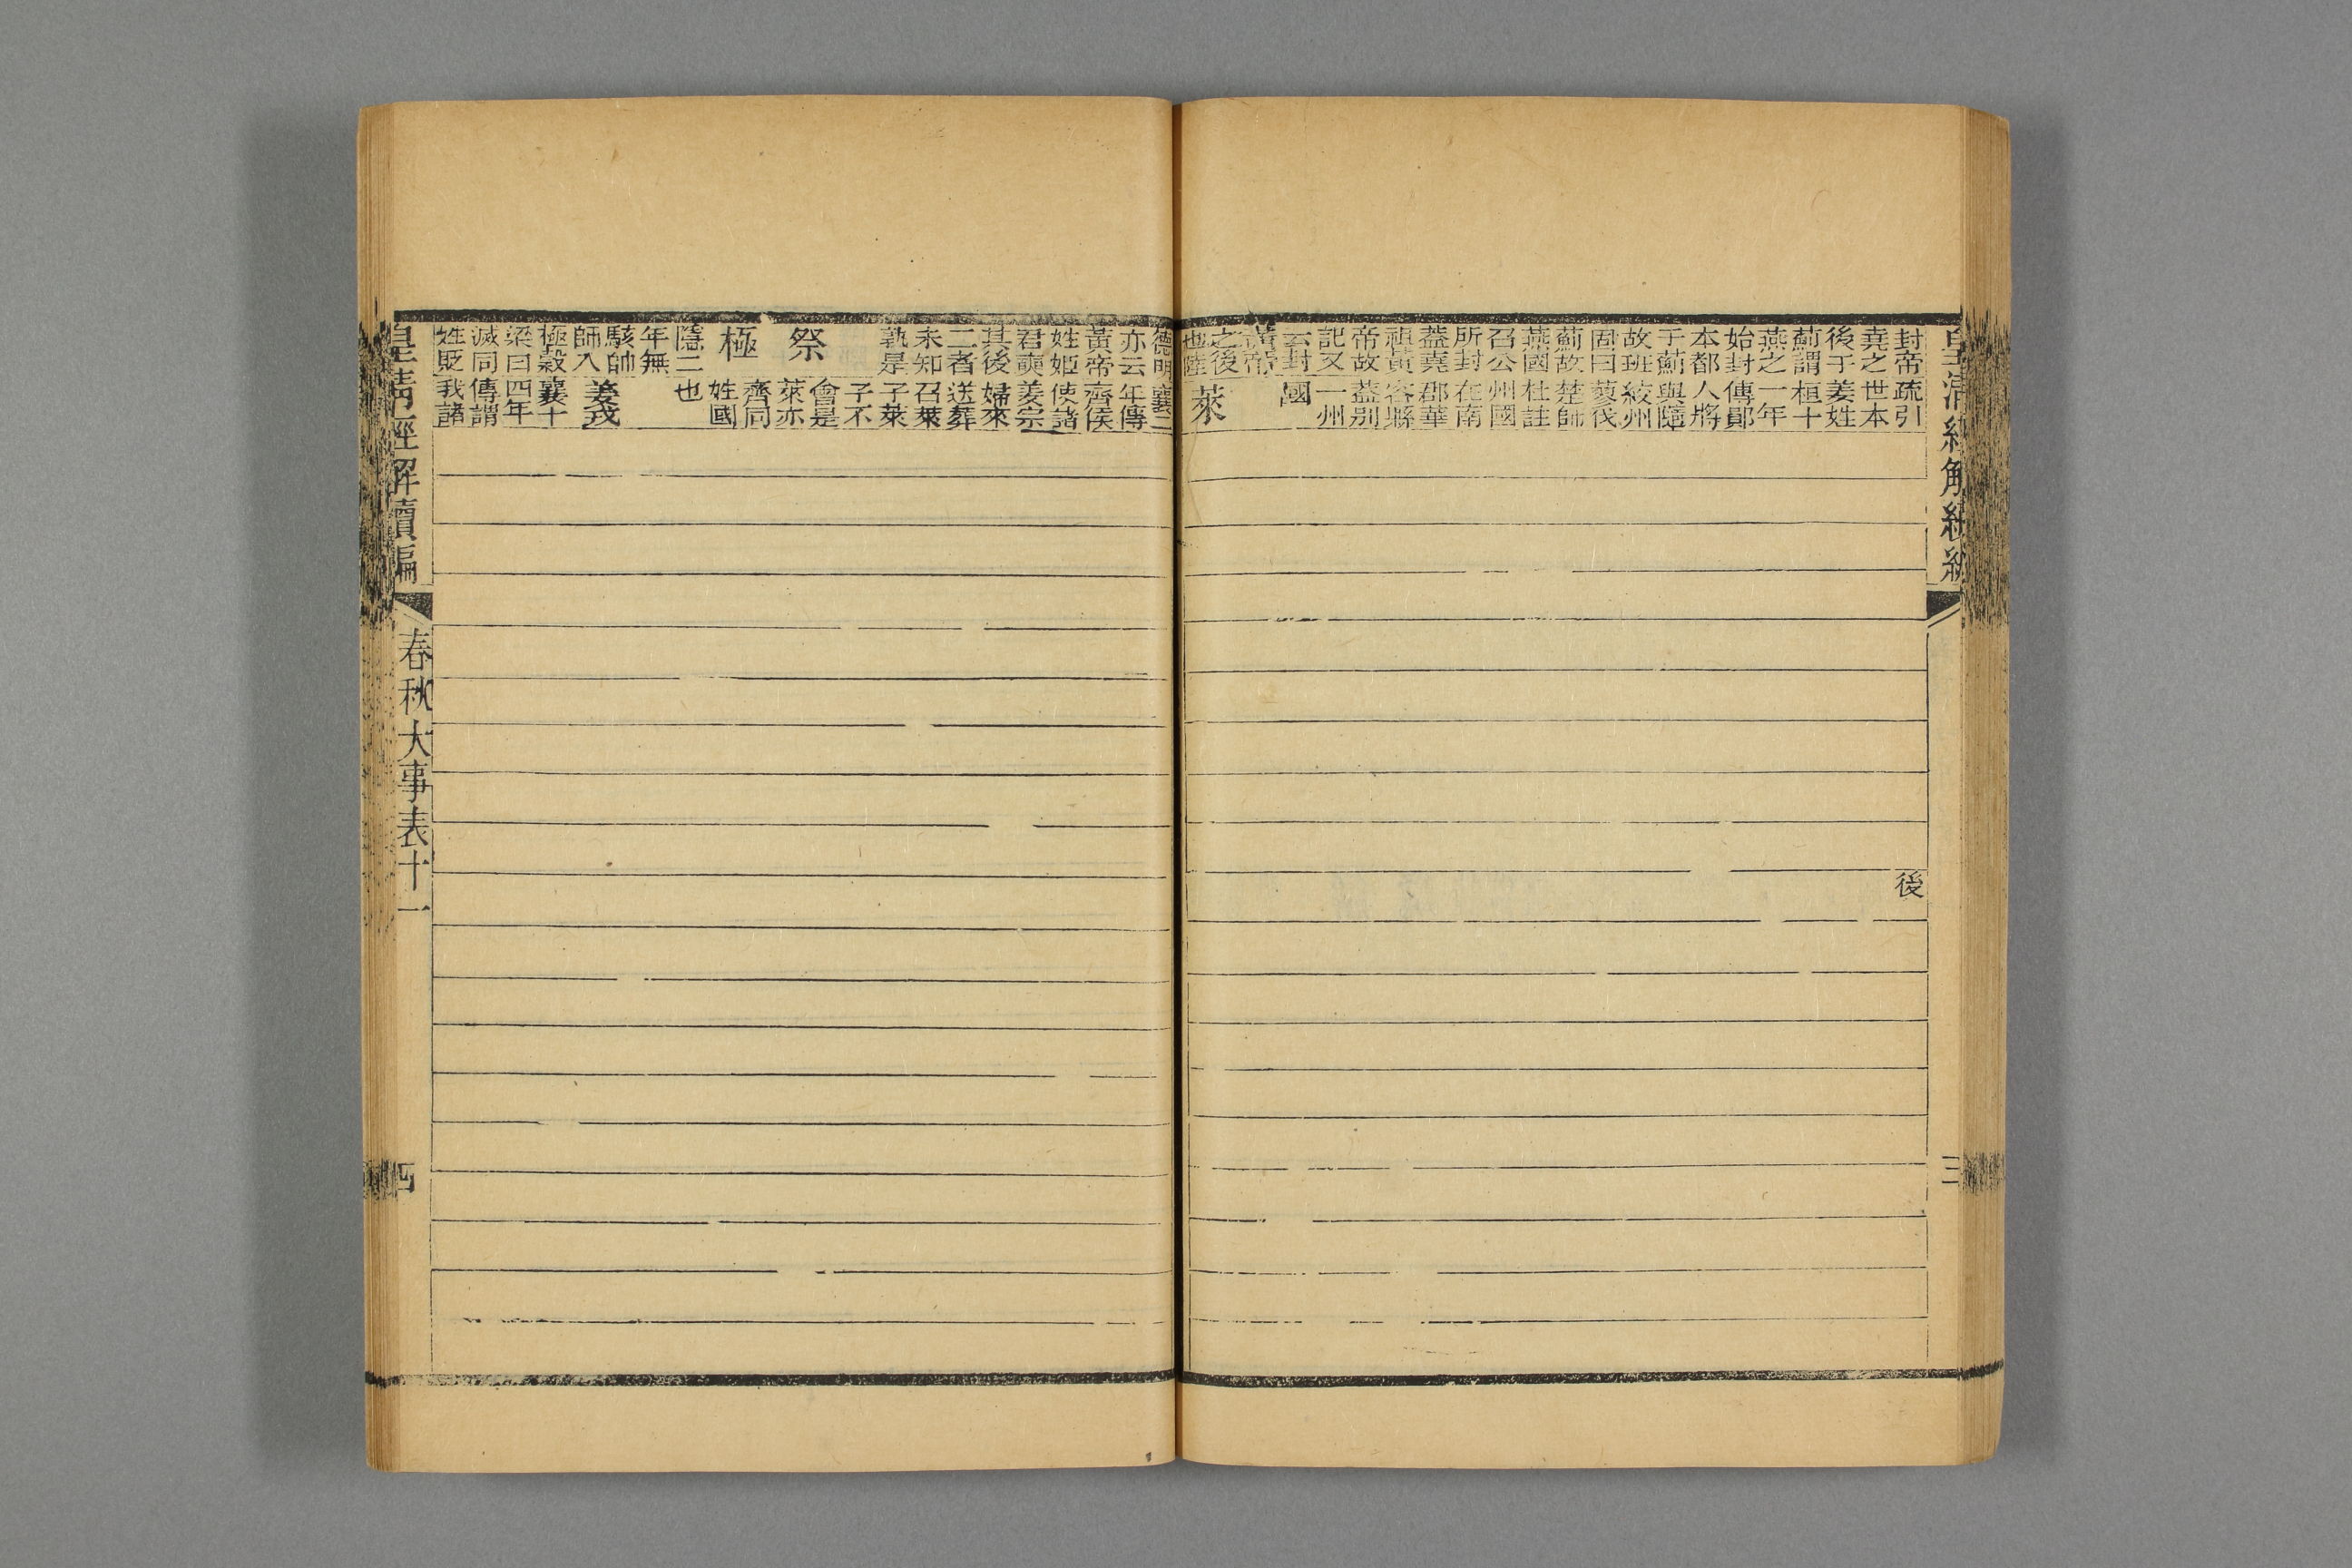 皇清經解續編
三
封帝
堯之
後于
薊謂
燕之
始封
本都
于薊
故班
固曰
薊故
燕國
召公
所封
蓋堯
祖黃
帝故
記又
云封
黃帝
之後
也陸
疏引
世本
姜姓
桓十
一年
傳鄖
人將
與隨
絞州
蓼伐
楚師
杜註
州國
在南
郡華
容縣
蓋别
一州
國
萊
後
德明
亦云
黃帝
姓姬
君奭
其後
二者
未知
孰是
祭
極
隱二
年無
駭帥
師入
極穀
梁曰
滅同
姓貶
襄二
年傳
齊侯
使諸
姜宗
婦來
送葬
召萊
子萊
子不
會是
萊亦
齊同
姓國
也
姜戎
襄十
四年
傳謂
我諸
皇清經解續編
春秋大事表十一
四